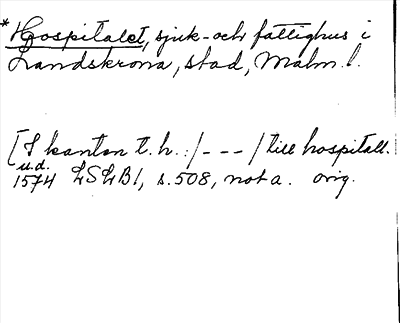 *Hospitalet, sjuk- och fattighus i
Landskrona, stad, Malm. l.
[I kanten t.h.:/---/till hospitall.
u.d.
1574 LSLB1, s.508, not a. orig.